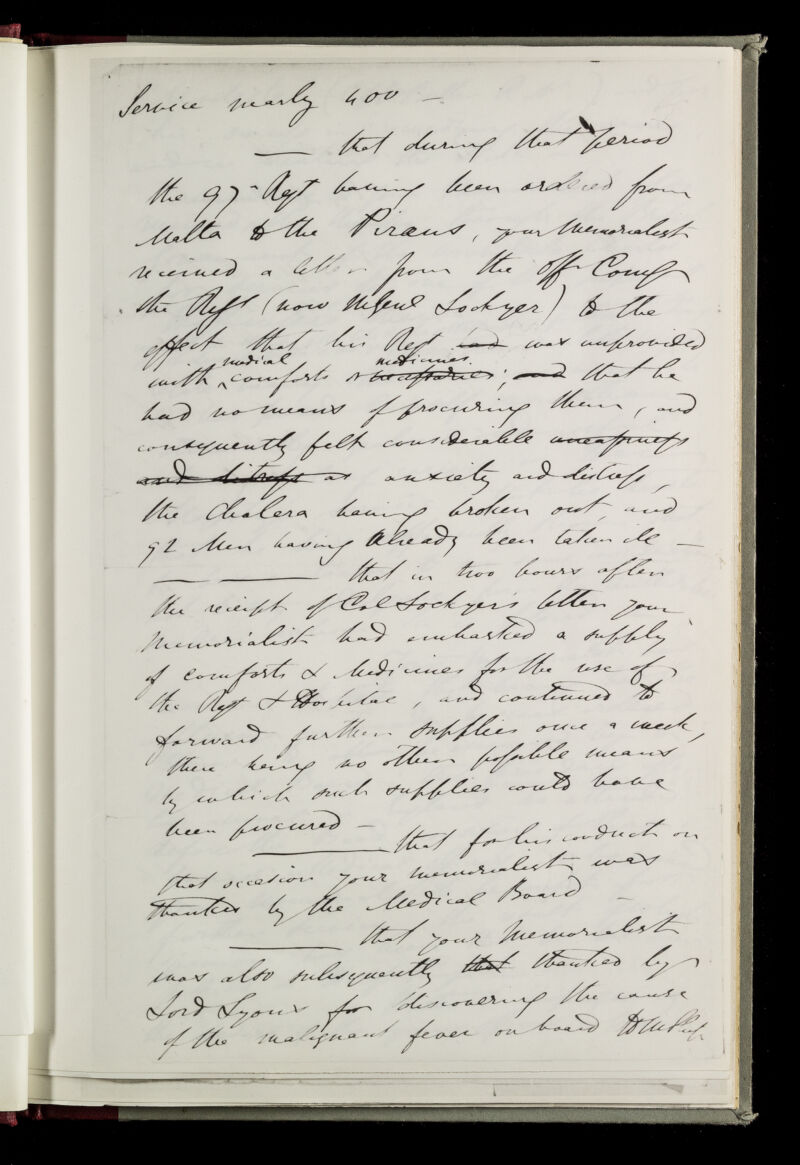 Service nearly 400 —
— that during that period
the 97th Regt having been ordered from
Malta to the Piraeus, your Memorialist
received a letter from the Offr Comg
the Regt (now MGenl Lockyer) to the
effect that his Regt had was unprovided
medical medicines.
with comforts & necessaries; and that he
had no means of procuring them, and
consequently felt considerable uneasiness
and distress as anxiety and distress,
the Cholera having broken out, and
92 Men having already been taken ill —
— — that in two hours after
the receipt of Col Lockyer's letter your
Memorialist had embarked a supply
of comforts & Medicines for the use of
the Regt & Hospital, and continued to
forward further supplies once a week,
there being no other possible means
by which such supplies could have
been procured —
— that for his conduct on
that occasion your memorialist was
thanked by the Medical Board —
— that your Memorialist
was also subsequently that thanked by
Lord Lyons for discovering the cause
of the malignant fever on board HM Ship